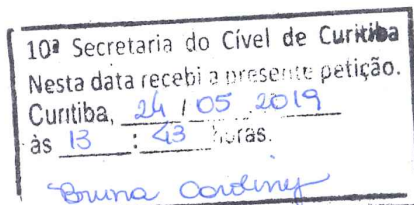 10ª Secretaria do Cível de Curitiba
Nesta data recebi a presente petição.
Curitiba, 24 / 05 2019
às 13 : 43 horas.
Bruna